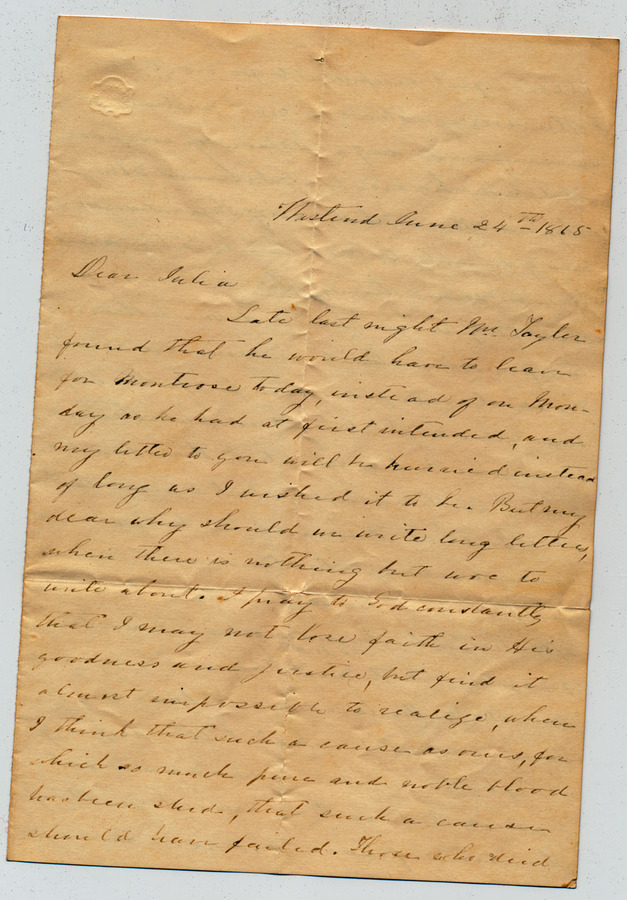 Westend June 24th 1865
Dear Julia
Late last night Mr. Taylor
found that he would have to leave
for Montrose today, instead of on Mon-
day as he had at first intended, and
my letter to you will be hurried instead
of long as I wished it to be. But my
dear why should we write long letters,
when there is nothing but woe to
write about. I pray to God constantly
that I may not lose faith in His
goodness and justice, but find it
almost impossible to realize, when
I think that such a cause as ours, for
which so much pure and noble blood
has been shed, that such a cause
should have failed. Those who died